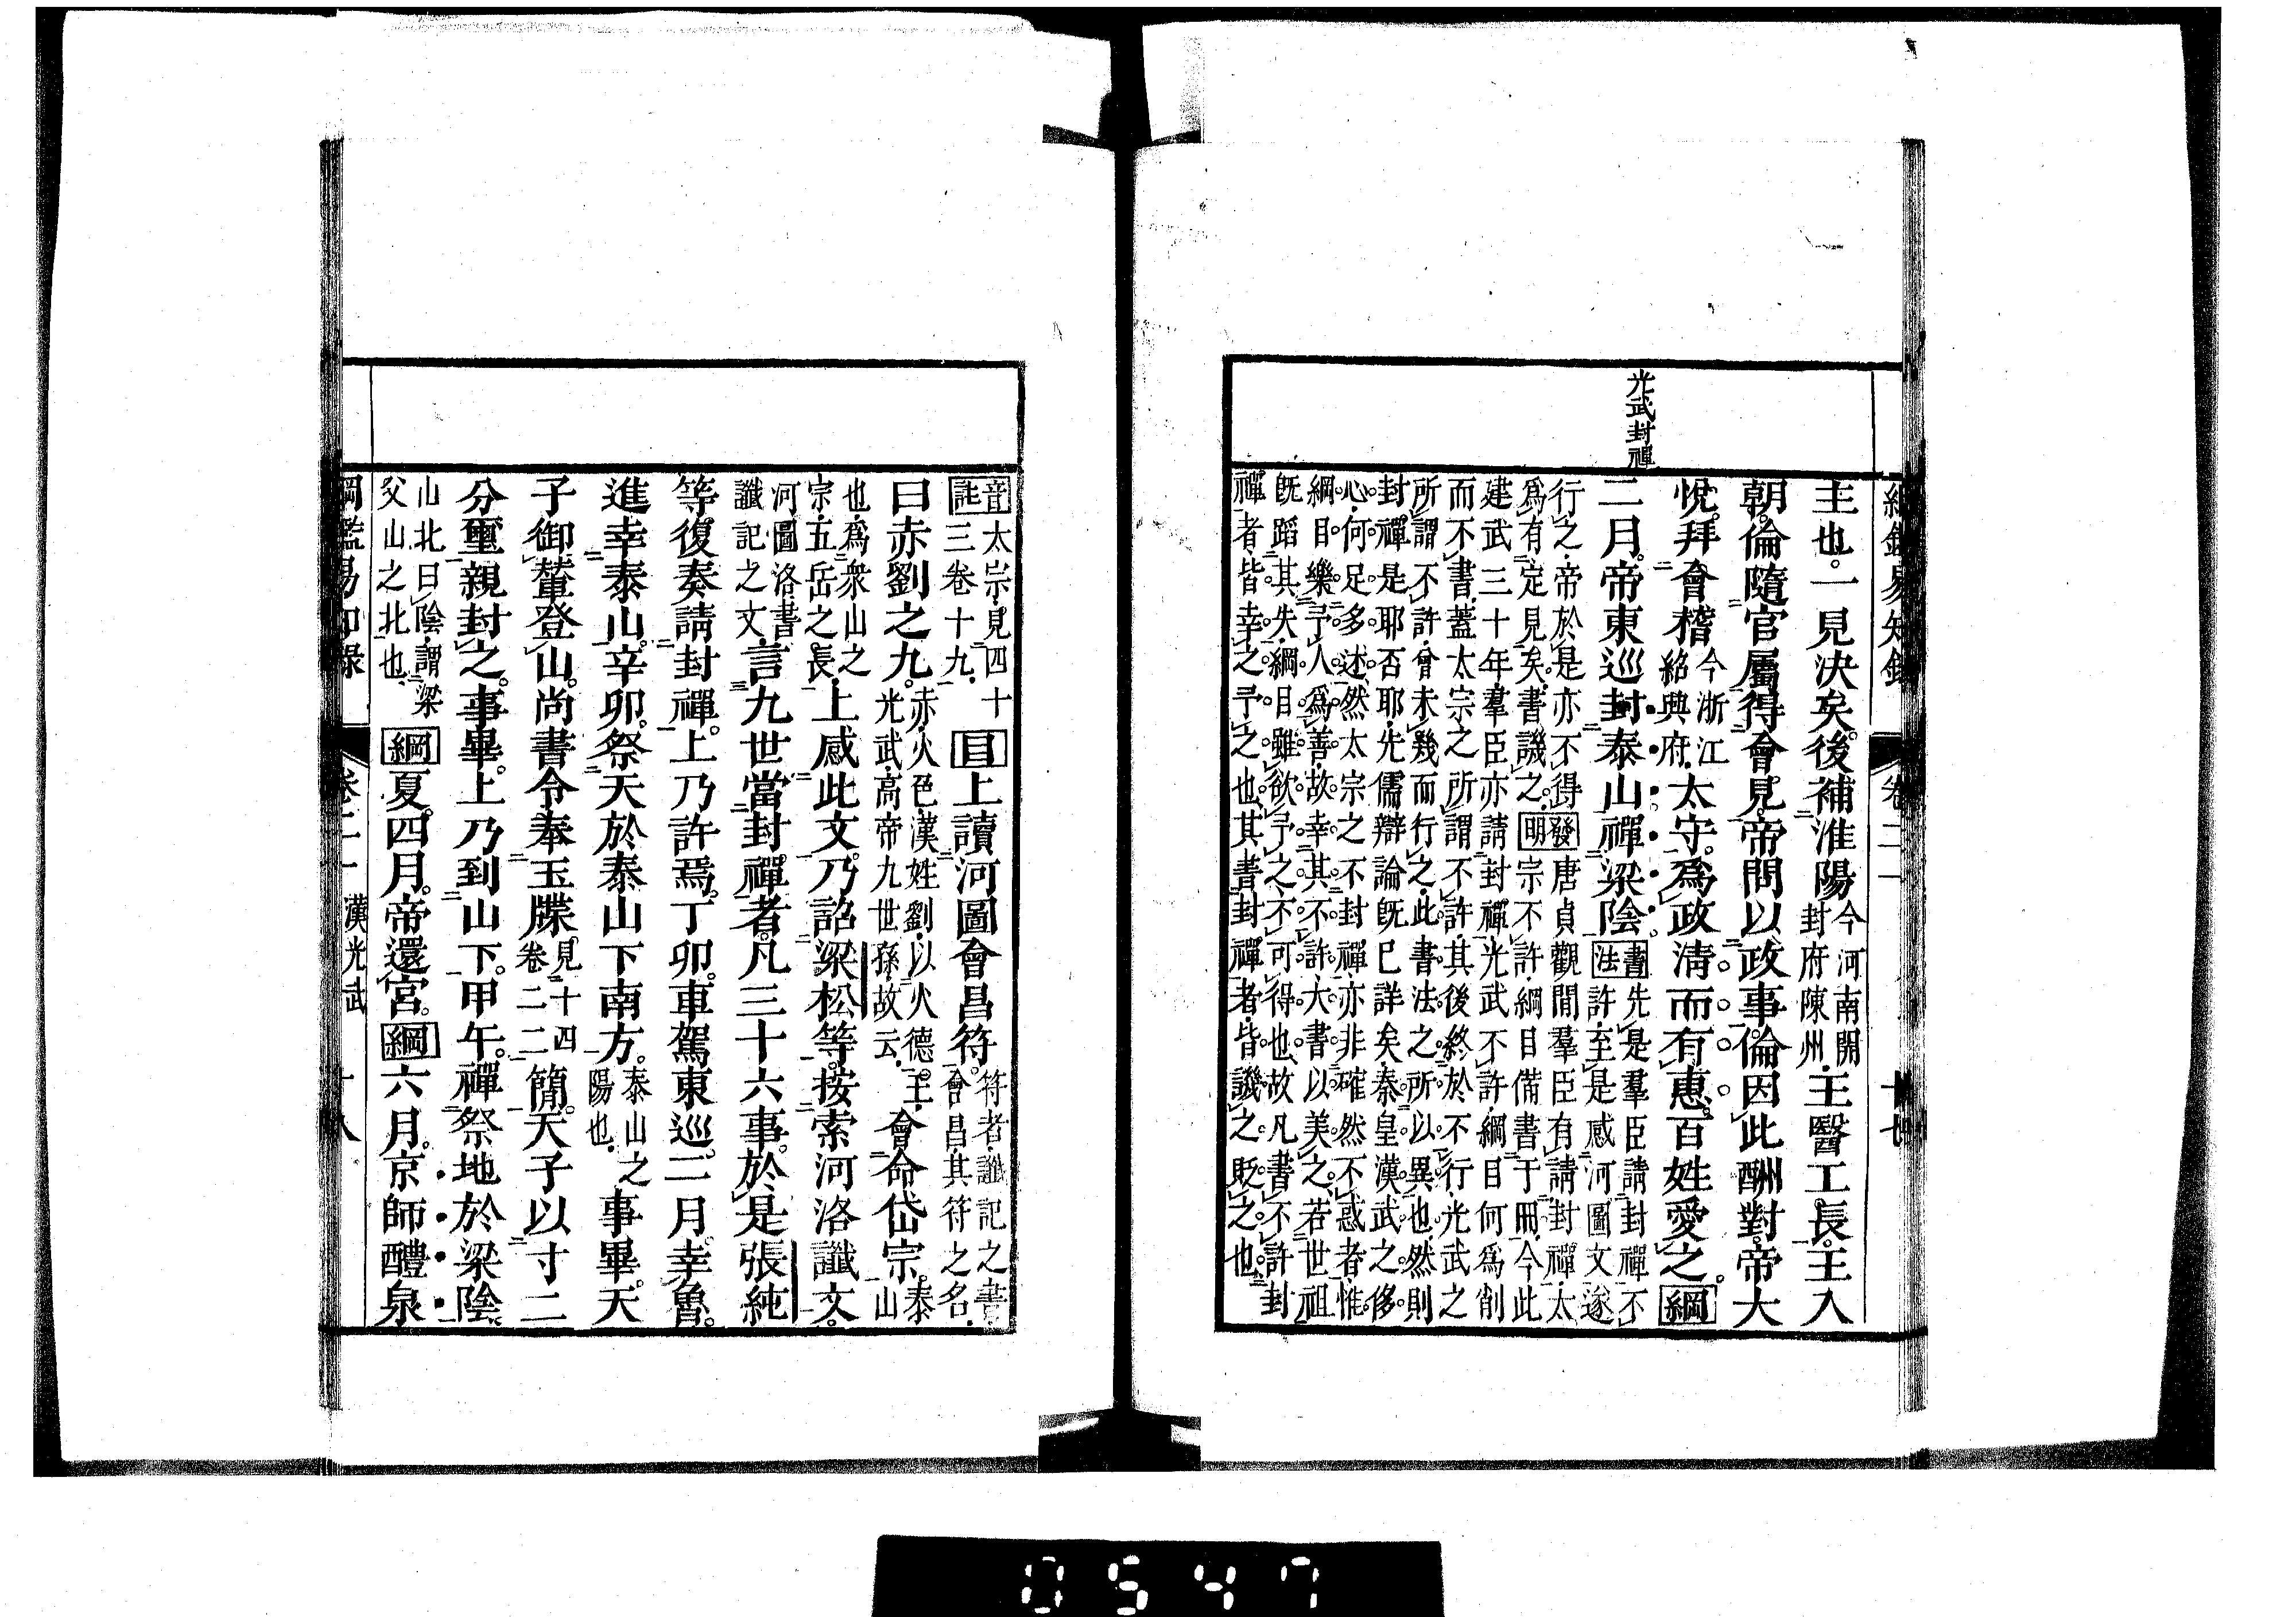 綱鑑易知錄 卷二一 十七
光武封禪
主也。一見決矣。後補淮陽今河南開封府陳州。王醫工長。王入
朝。倫隨官屬得會見。帝問以政事。倫因此酬對。帝大
悅。拜會稽今浙江紹興府。太守。爲政淸而有惠。百姓愛之。綱
二月。帝東巡。封泰山。禪梁陰。書法先是羣臣請封禪不許。至是感河圖文遂
行之。帝於是亦不得爲有定見矣。書譏之。發明唐貞觀間羣臣有請封禪。太宗不許。綱目備書于冊。今此
建武三十年。羣臣亦請封禪。光武不許。綱目何爲削而不書。蓋太宗之所謂不許。其後終於不行。光武之
所謂不許。曾未幾而行之。此書法之所以異也。然則封禪是耶否耶。先儒辯論旣巳詳矣。秦皇漢武之侈
心。何足多述。然太宗之不封禪。亦非確然不惑者。惟綱目樂予人爲善。故幸其不許。大書以美之。若世祖
旣蹈其失。綱目雖欲予之。不可得也。故凡書不許封禪者。皆幸之予之也。其書封禪者。皆譏之貶之也。
音註太宗。見四十三卷十九。目上讀河圖會昌符。符者。讖記之書。會昌。其符之名。
曰赤劉之九。赤。火色。漢姓劉。以火德王。光武。高帝九世孫。故云。會命岱宗。泰山
也。爲衆山之宗。五岳之長。上感此文。乃詔梁松等。按索河洛讖文。
河圖洛書讖記之文。言九世當封禪者。凡三十六事。於是張純
等復奏請封禪。上乃許焉。丁卯。車駕東巡。二月。幸魯。
進幸泰山。辛卯。祭天於泰山下南方。泰山之陽也。事畢。天
子御輦登山。尚書令奉玉牒。見十四卷二二。簡。天子以寸二
分璽親封之。事畢。上乃到山下。甲午。禪祭地於梁陰。
山北曰陰。謂梁父山之北也。綱夏。四月。帝還宮。綱六月。京師醴泉
綱鑑易知錄 卷二一 漢光武 十八
0547